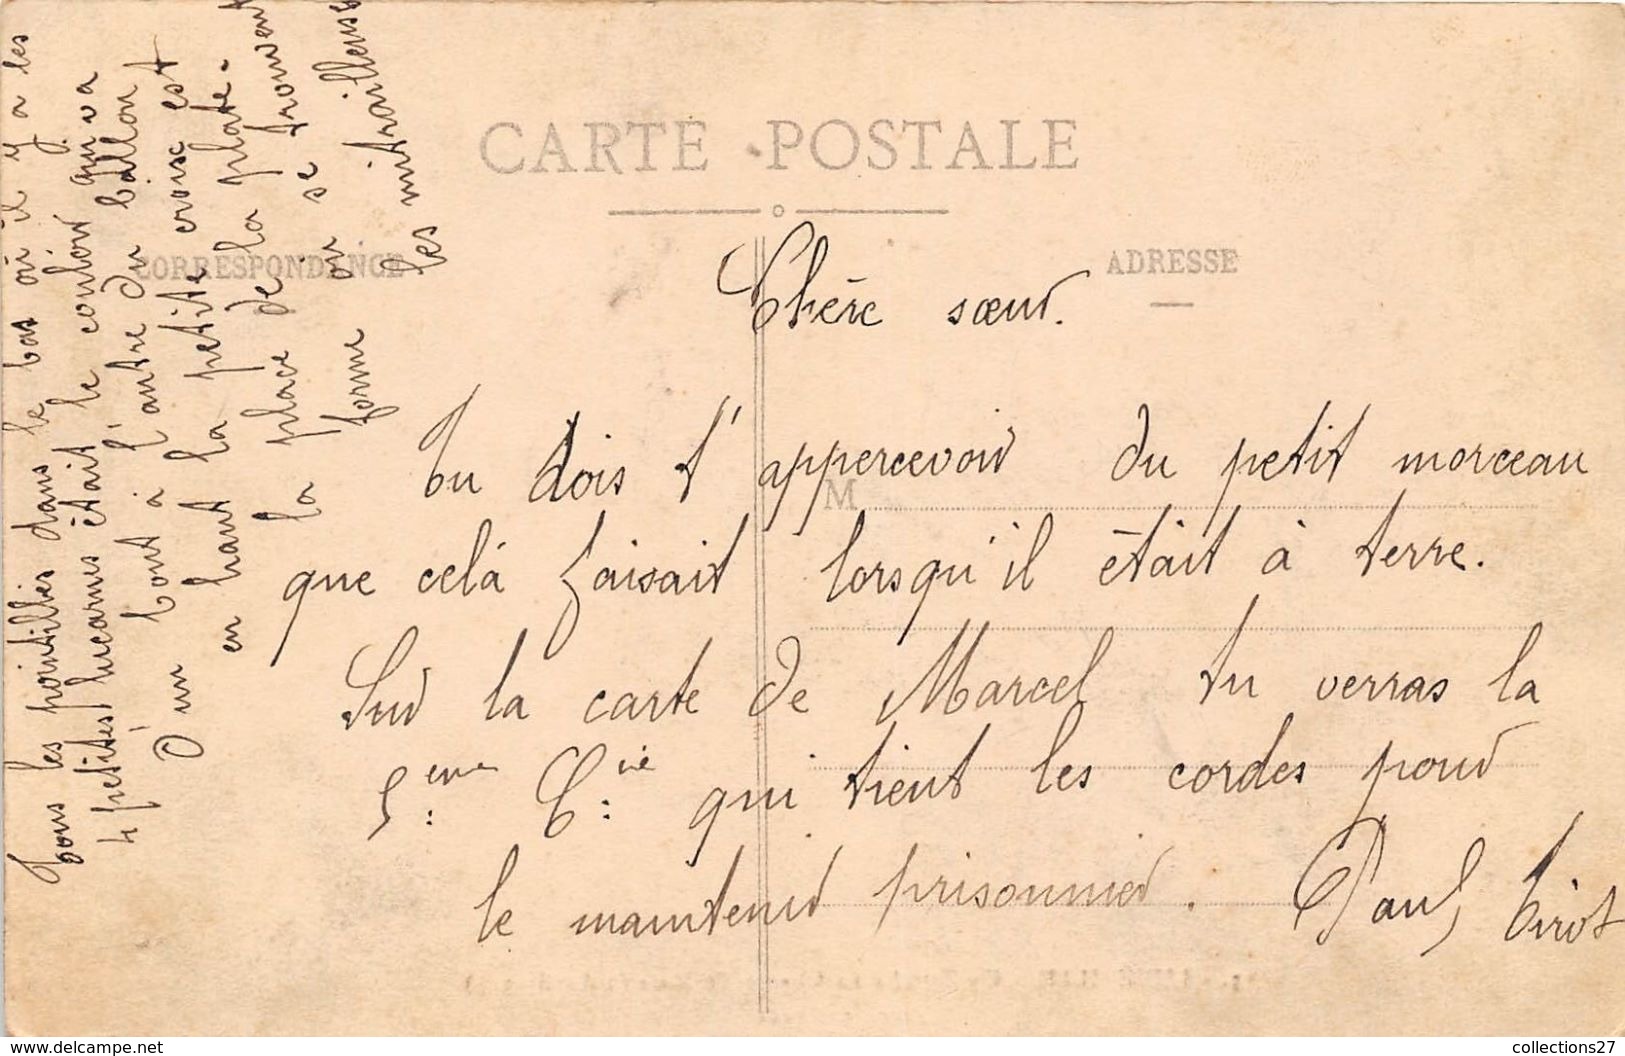 CARTE POSTALE
CORRESPONDANCE
ADRESSE
M
Chère sœur.
Tu dois t'appercevoir du petit morceau
que celà faisait lorsqu'il était à terre.
Sur la carte de Marcel tu verras la
5ème Cie qui tient les cordes pour
le maintenir prisonnier. Paul Tirot
Tous les pointillés dans le bas où il y a les
4 petites lucarnes était le couloir qui va
D'un bout à l'autre du ballon
en haut la petite croix est
la place de la plate-
forme où se trouvent
les mitrailleuses
collections27
www.delcampe.net